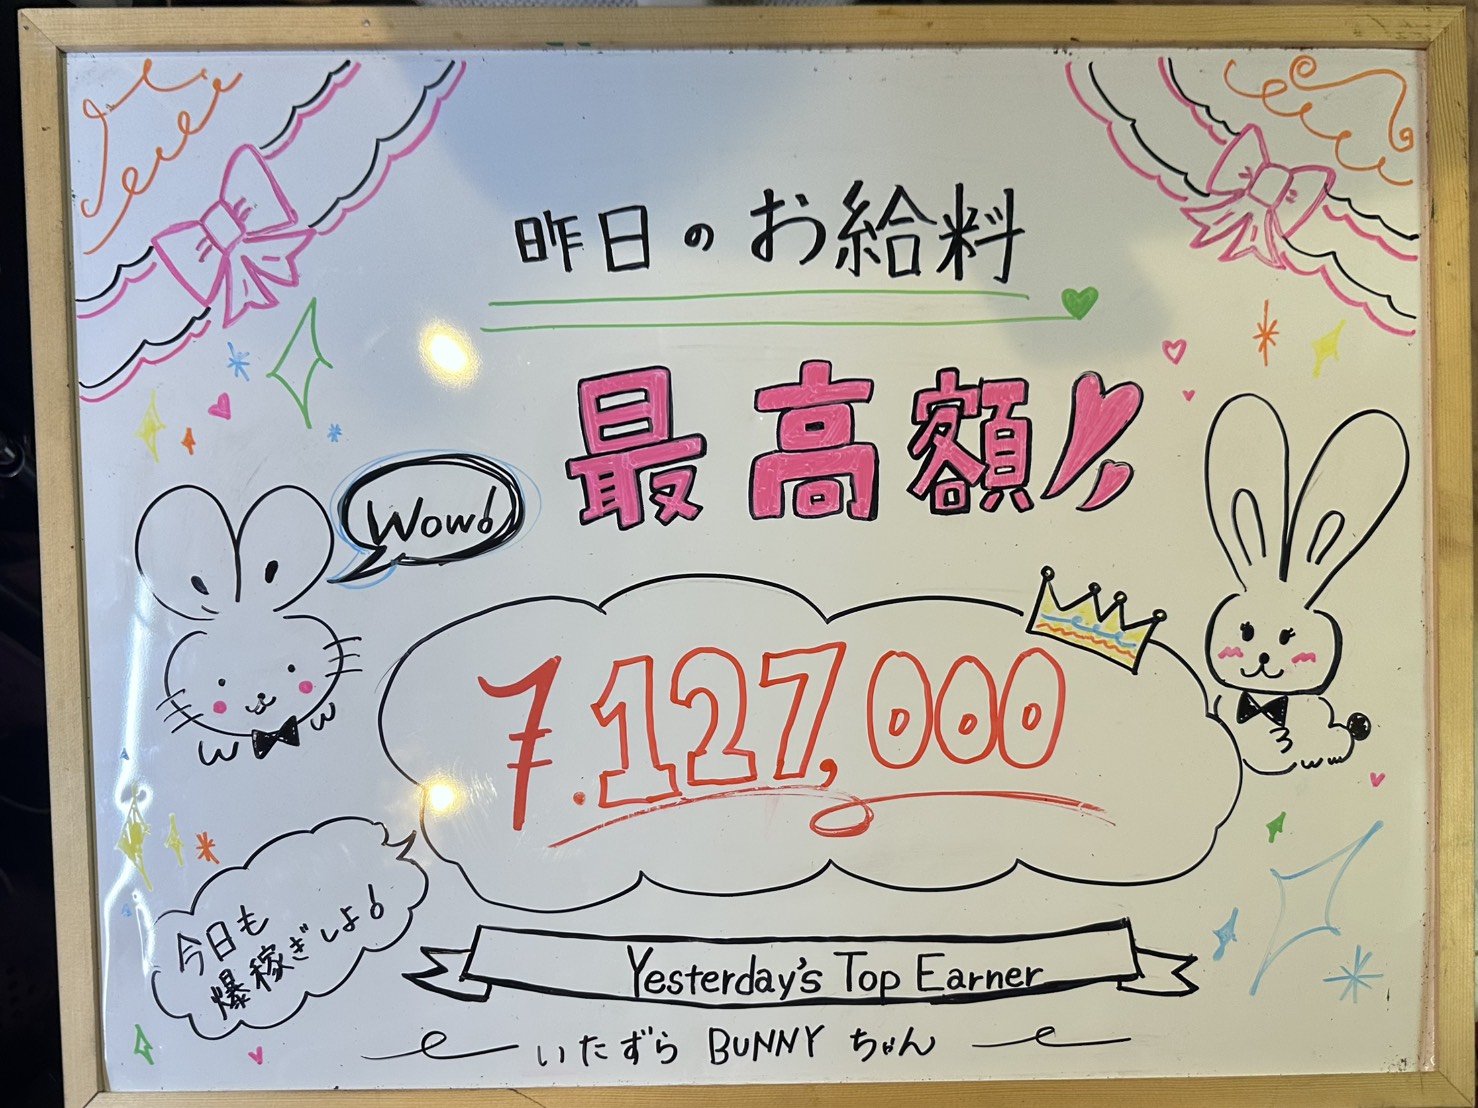 昨日のお給料
最高額!
Wow!
7.127,000
今日も
爆稼ぎしよ!
Yesterday's Top Earner
いたずら BUNNY ちゃん